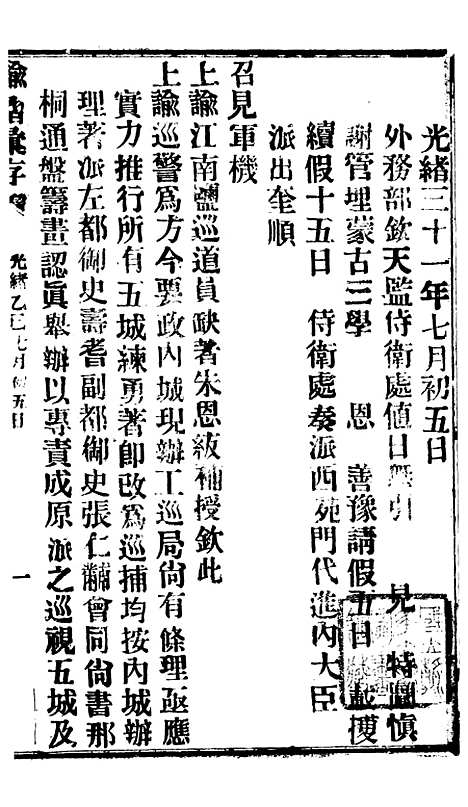 光緒三十一年七月初五日
外務部欽天監侍衛處值日無引 見 特圖慎
謝管理蒙古三學 恩 善豫請假五日 載搜
續假十五日 侍衛處奏派西苑門代進內大臣
派出奎順
召見軍機
上諭江南鹽巡道員缺著朱恩紱補授欽此
上諭巡警為方今要政內城現辦工巡局尚有條理亟應
實力推行所有五城練勇著即改為巡捕均按內城辦
理著派左都御史壽耆副都御史張仁黼會同尚書那
桐通盤籌畫認真舉辦以專責成原派之巡視五城及
諭摺彙存 光緒乙巳七月初五日 一